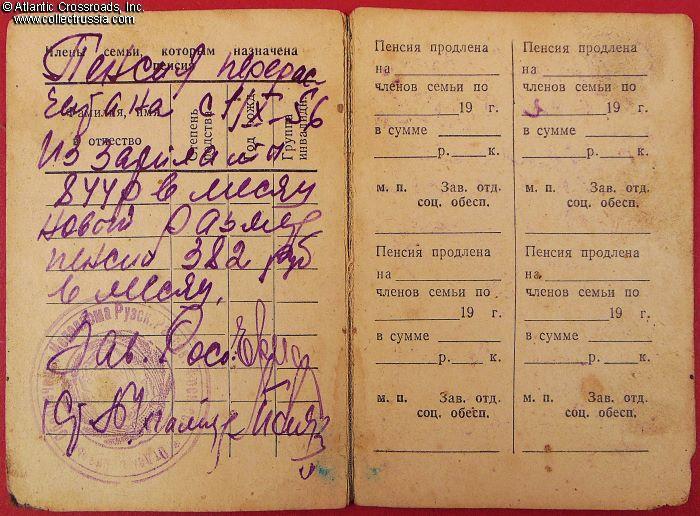 © Atlantic Crossroads, Inc.
www.collectrussia.com
Члены семьи, которым назначена
пенсия
Пенсия перерас
Фамилия, имя
и отчество
Степень
родства
Год рожд.
Группа
инвалидн.
на с 1/X-56
Из зарплаты
844р в месяц
новый размер
пенсии 382 руб
в месяц.
Зав.
Ст.
Пенсия продлена
на
членов семьи по
19 г.
в сумме
р. к.
м. п. Зав. отд.
соц. обесп.
Пенсия продлена
на
членов семьи по
19 г.
в сумме
р. к.
м. п. Зав. отд.
соц. обесп.
Пенсия продлена
на
членов семьи по
19 г.
в сумме
р. к.
м. п. Зав. отд.
соц. обесп.
Пенсия продлена
на
членов семьи по
19 г.
в сумме
р. к.
м. п. Зав. отд.
соц. обесп.